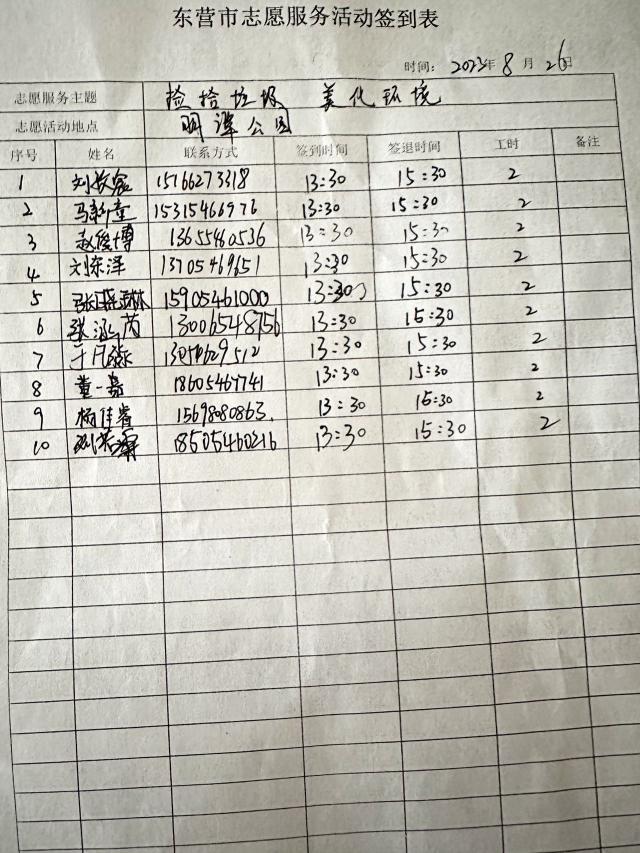 东营市志愿服务活动签到表
时间: 2023年 8 月 26日
志愿服务主题 捡拾垃圾 美化环境
志愿活动地点 明潭公园
序号 姓名 联系方式 签到时间 签退时间 工时 备注
1 15166273318 13:30 15:30 2
2 15315466976 13:30 15:30 2
3 赵俊博 13655460536 13:30 15:30 2
4 刘东泽 13705469651 13:30 15:30 2
5 15905461000 13:30 15:30 2
6 张涵芮 13006548756 13:30 15:30 2
7 13:30 15:30 2
8 董一 18605467741 13:30 15:30 2
9 杨佳睿 15698080863. 13:30 15:30 2
10 18505460216 13:30 15:30 2